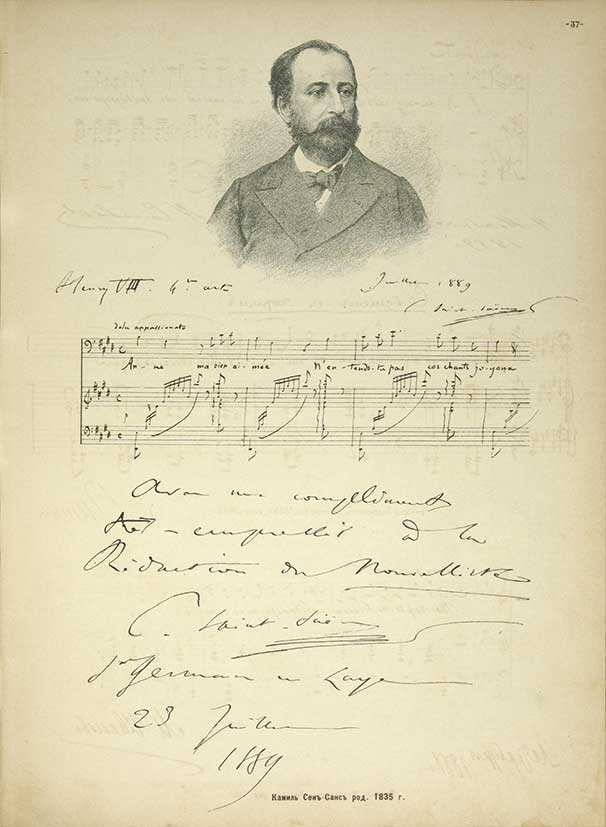 -37-
Henry VIII. 4me acte
Juillet 1889
C. Saint-Saëns
dolce appassionato
An-ne ma bien ai-mée N'en-tends-tu pas ces chants joyeux
Avec mes compliments
très-empressés à la
Rédaction du Nouvelliste
C. Saint-Saëns
St Germain en Laye
23 Juillet
1889
Камиль Сенъ-Сансъ род. 1835 г.